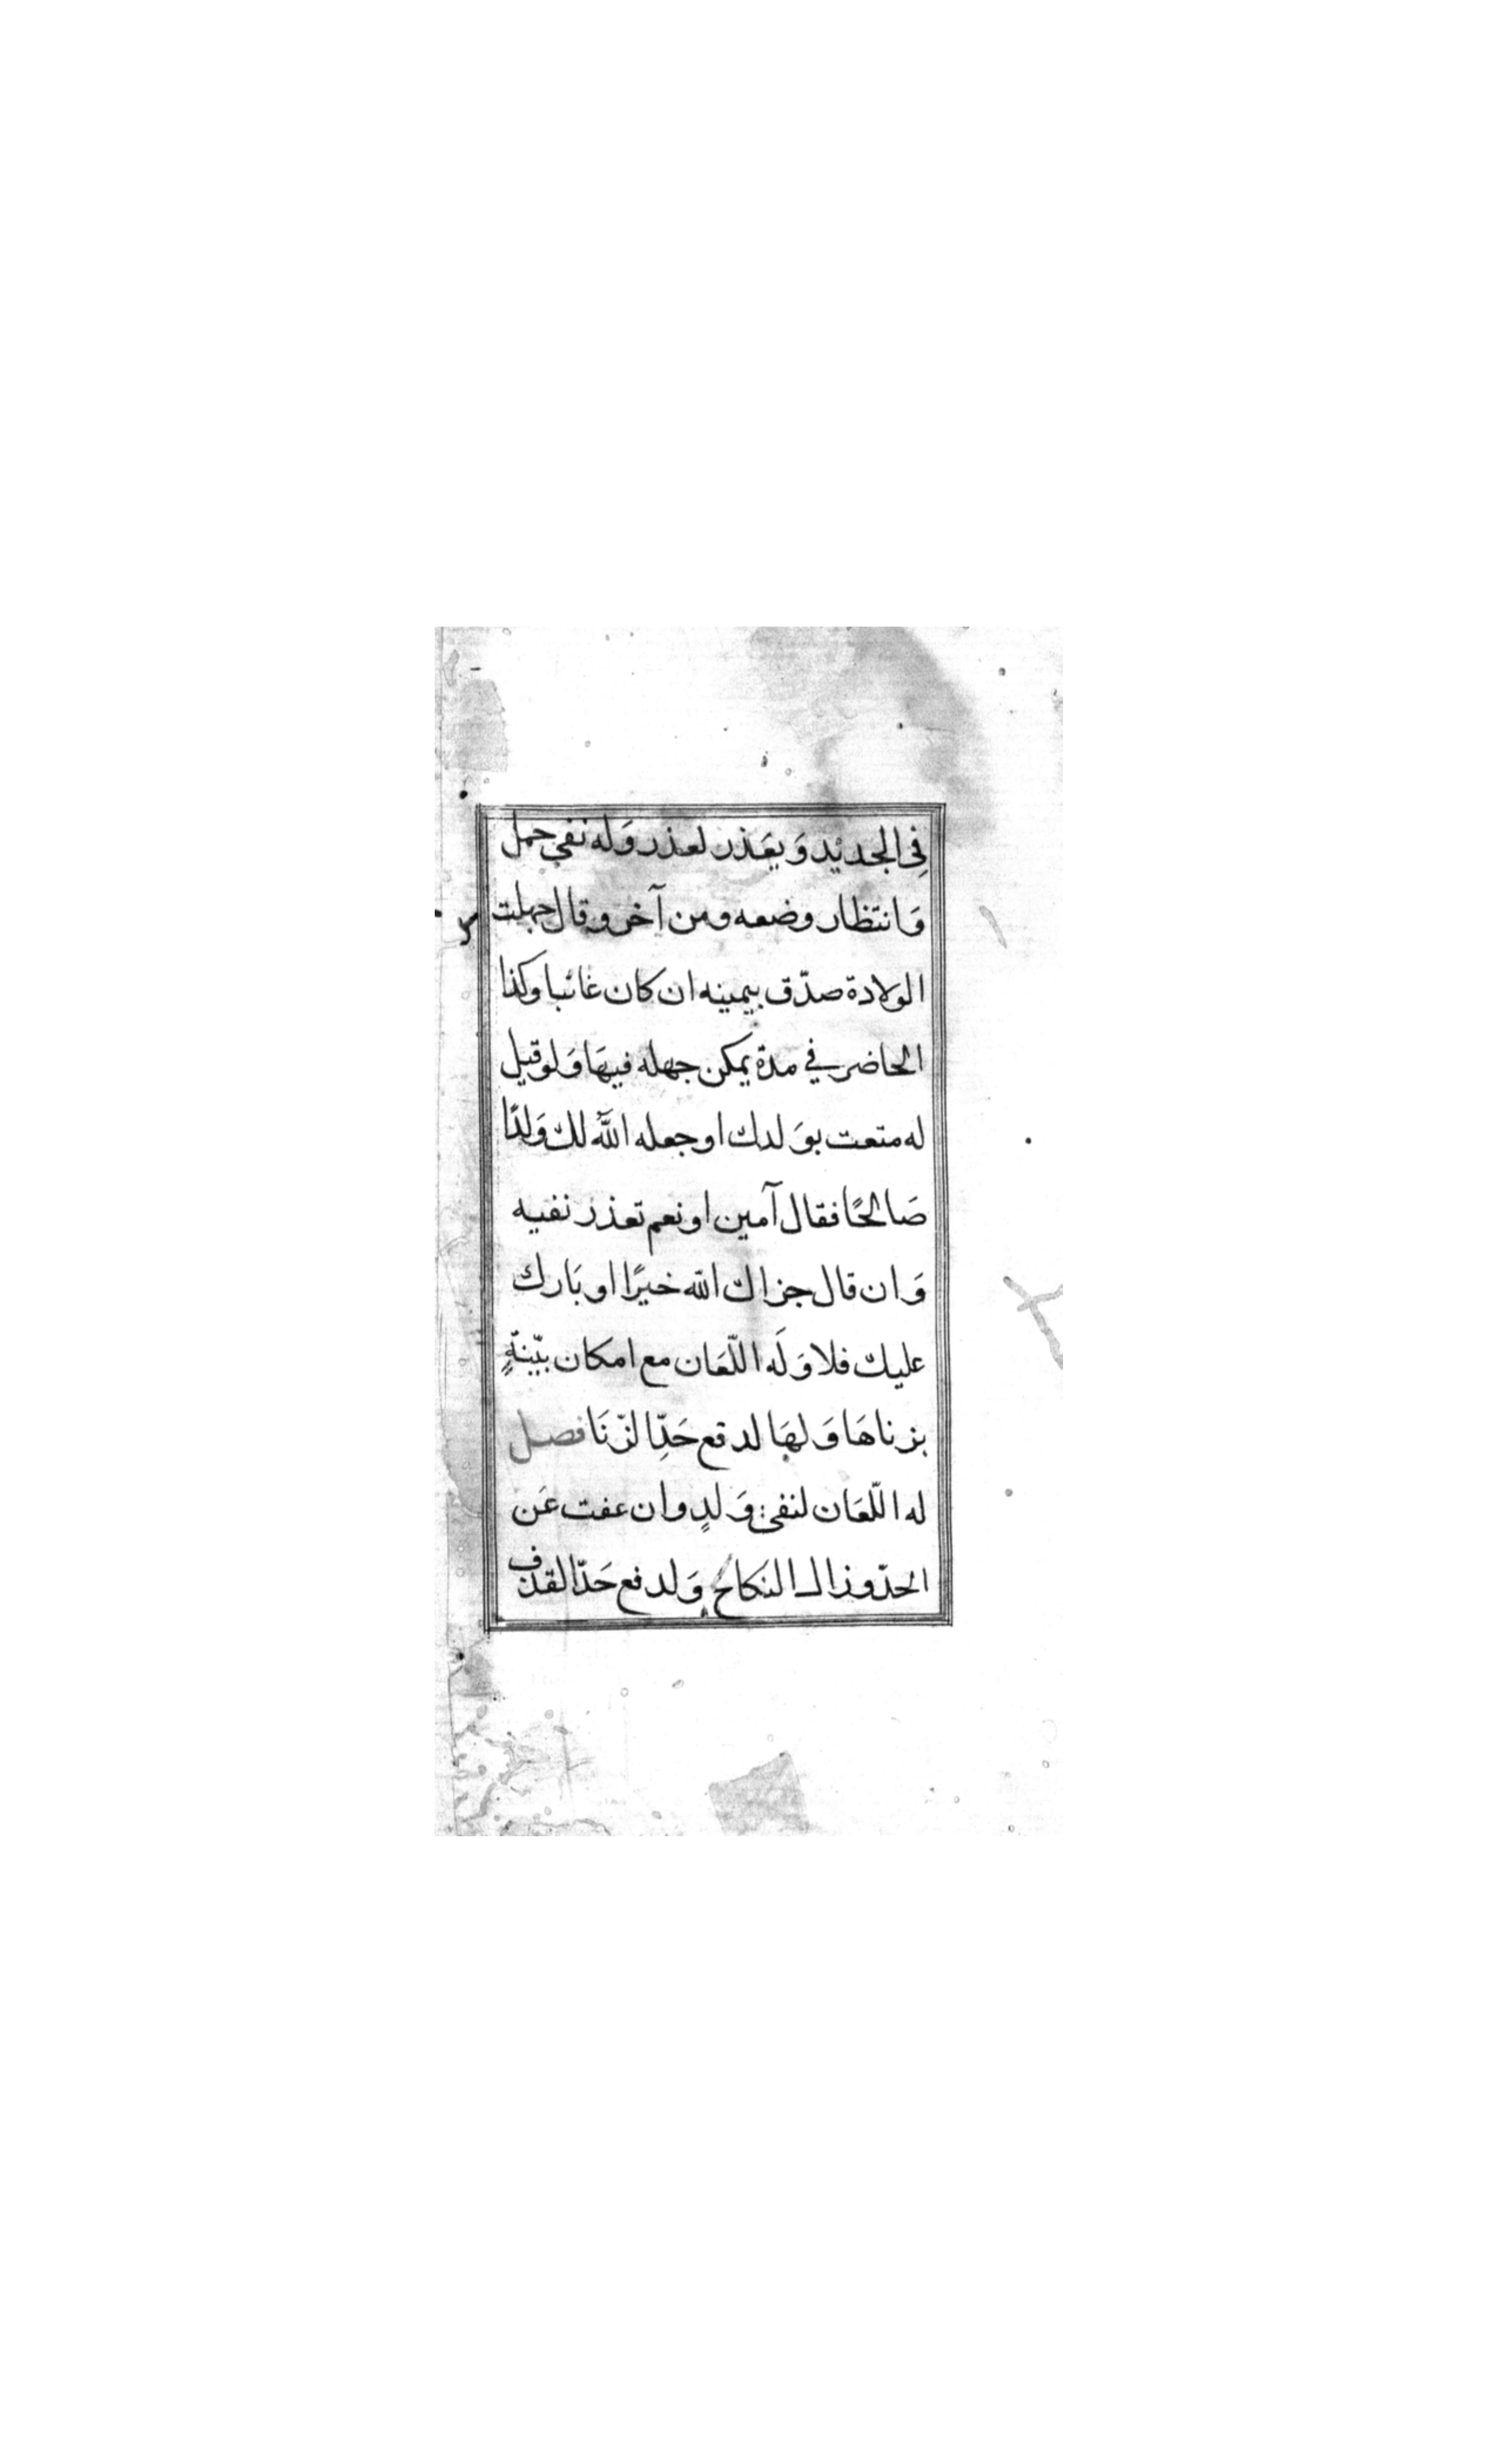 فِي الجديد وَيعَذر لعذر وَله نفي حمل
وَانتظار وضعه ومن آخر وقال جهلت
الولادة صدّق بيمينه ان كان غائبا وكذا
الحاضر في مدة يمكن جهله فيهَا وَلو قيل
له متعت بوَلدك او جعله اللّه لك وَلدًا
صَالحًا فقال آمين او نعم تعذر نفيه
وَان قال جزاك اللّه خيرًا او بَارك
عليك فلا وَلَه اللّعَان مع امكان بيّنةٍ
بزناهَا وَلهَا لدفع حَدِّ الزّنَا فصل
له اللّعَان لنفي وَلدٍ وان عفت عَن
الحدّ وزال النكاح وَلدفع حَدّ القذف